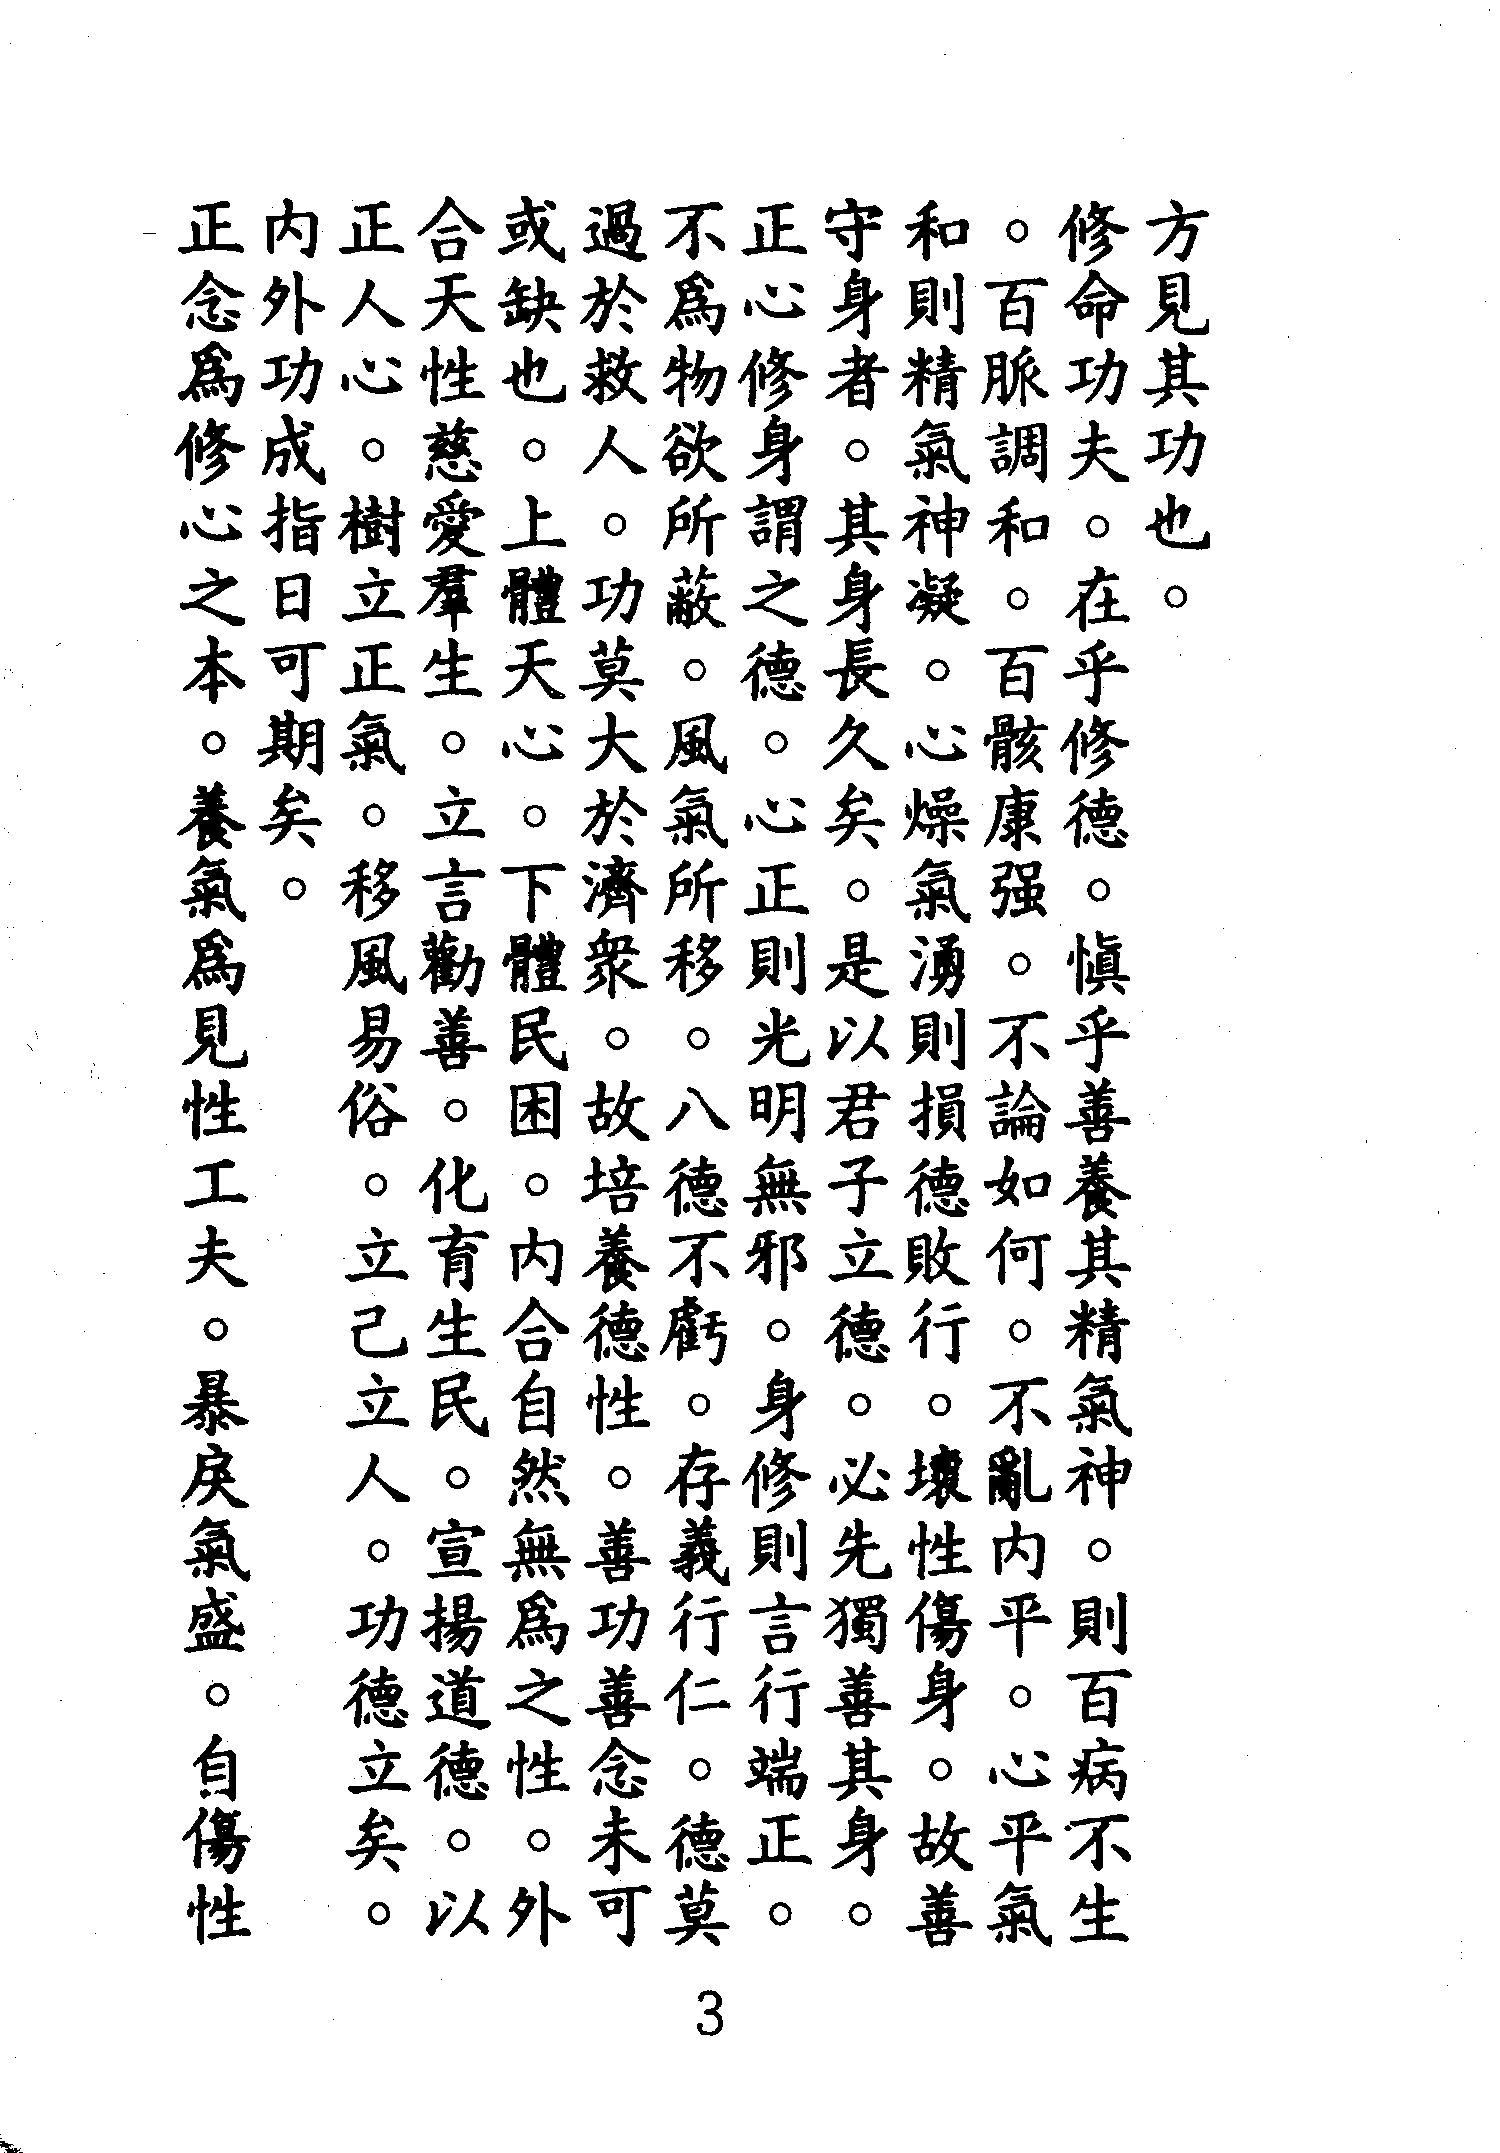 方見其功也。
修命功夫。在乎修德。慎乎善養其精氣神。則百病不生
。百脈調和。百骸康强。不論如何。不亂内平。心平氣
和則精氣神凝。心燥氣湧則損德敗行。壞性傷身。故善
守身者。其身長久矣。是以君子立德。必先獨善其身。
正心修身謂之德。心正則光明無邪。身修則言行端正。
不爲物欲所蔽。風氣所移。八德不虧。存義行仁。德莫
過於救人。功莫大於濟衆。故培養德性。善功善念未可
或缺也。上體天心。下體民困。内合自然無爲之性。外
合天性慈愛羣生。立言勸善。化育生民。宣揚道德。以
正人心。樹立正氣。移風易俗。立己立人。功德立矣。
内外功成指日可期矣。
正念爲修心之本。養氣爲見性工夫。暴戾氣盛。自傷性
3